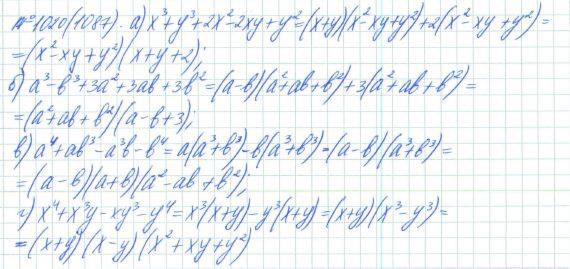 №1020(1087). а) x³+y³+2x²-2xy+y²=(x+y)(x²-xy+y²)+2(x²-xy+y²)=
=(x²-xy+y²)(x+y+2);
б) a³-b³+3a²+3ab+3b²=(a-b)(a²+ab+b²)+3(a²+ab+b²)=
=(a²+ab+b²)(a-b+3);
в) a⁴+ab³-a³b-b⁴=a(a³+b³)-b(a³+b³)=(a-b)(a³+b³)=
=(a-b)(a+b)(a²-ab+b²);
г) x⁴+x³y-xy³-y⁴=x³(x+y)-y³(x+y)=(x+y)(x³-y³)=
=(x+y)(x-y)(x²+xy+y²)